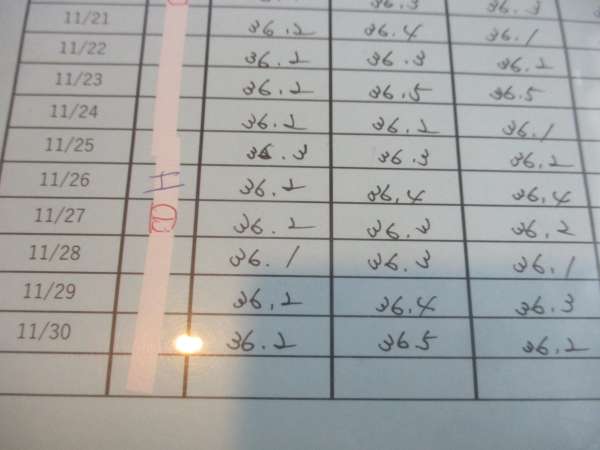 36.3 36.3
11/21 36.2 36.4 36.1
11/22 36.2 36.3 36.2
11/23 36.2 36.5 36.5
11/24 36.2 36.2 36.1
11/25 36.3 36.3 36.2
11/26 土 36.2 36.4 36.4
11/27 36.2 36.3 36.2
11/28 36.1 36.3 36.1
11/29 36.2 36.4 36.3
11/30 36.2 365 36.2